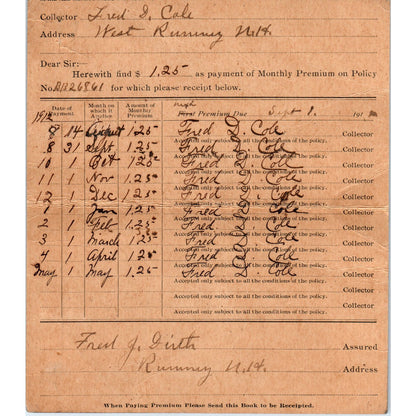 Collector Fred D. Cole
Address West Rumney N.H.
Dear Sir:
Herewith find $ 1.25 as payment of Monthly Premium on Policy
No. for which please receipt below.
Date of Payment Month on which it Applies Amount of Monthly Premium First Premium Due Sept 1. 191
8 14 August 1.25 Fred D. Cole Collector
Accepted only subject to all the conditions of the policy.
8 31 Sept. 1.25 Fred D. Cole Collector
Accepted only subject to all the conditions of the policy.
10 1 Oct 1.25 Fred D. Cole Collector
Accepted only subject to all the conditions of the policy.
11 1 Nov 1.25 Fred D. Cole Collector
Accepted only subject to all the conditions of the policy.
12 1 Dec 1.25 Fred D. Cole Collector
Accepted only subject to all the conditions of the policy.
1 1 Jan 1.25 Fred D. Cole Collector
Accepted only subject to all the conditions of the policy.
2 1 Feb 1.25 Fred D. Cole Collector
Accepted only subject to all the conditions of the policy.
3 1 March 1.25 Fred D. Cole Collector
Accepted only subject to all the conditions of the policy.
4 1 April 1.25 Fred D. Cole Collector
Accepted only subject to all the conditions of the policy.
May 1 May 1.25 Fred D. Cole Collector
Accepted only subject to all the conditions of the policy.
Collector
Accepted only subject to all the conditions of the policy.
Fred J. Assured
Rumney N.H. Address
When Paying Premium Please Send this Book to be Receipted.